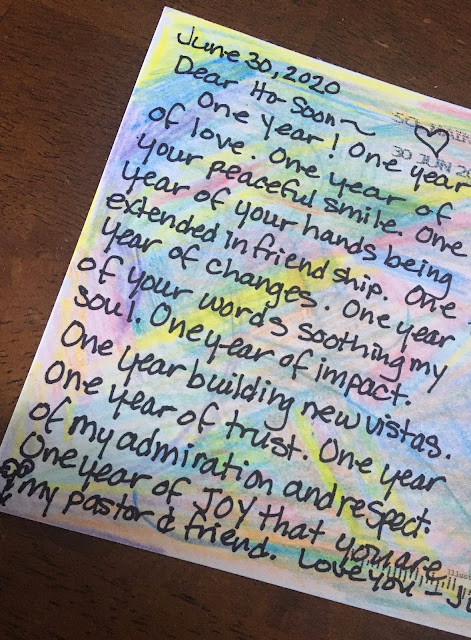 June 30, 2020
Dear Ho-Soon~
One Year! One year
of love. One year of
your peaceful smile. One
year of your hands being
extended in friendship. One
year of changes. One year
of your words soothing my
soul. One year of impact.
One year building new vistas.
One year of trust. One year
of my admiration and respect.
One year of JOY that you are
my pastor & friend. Love you -
30 JUN 20